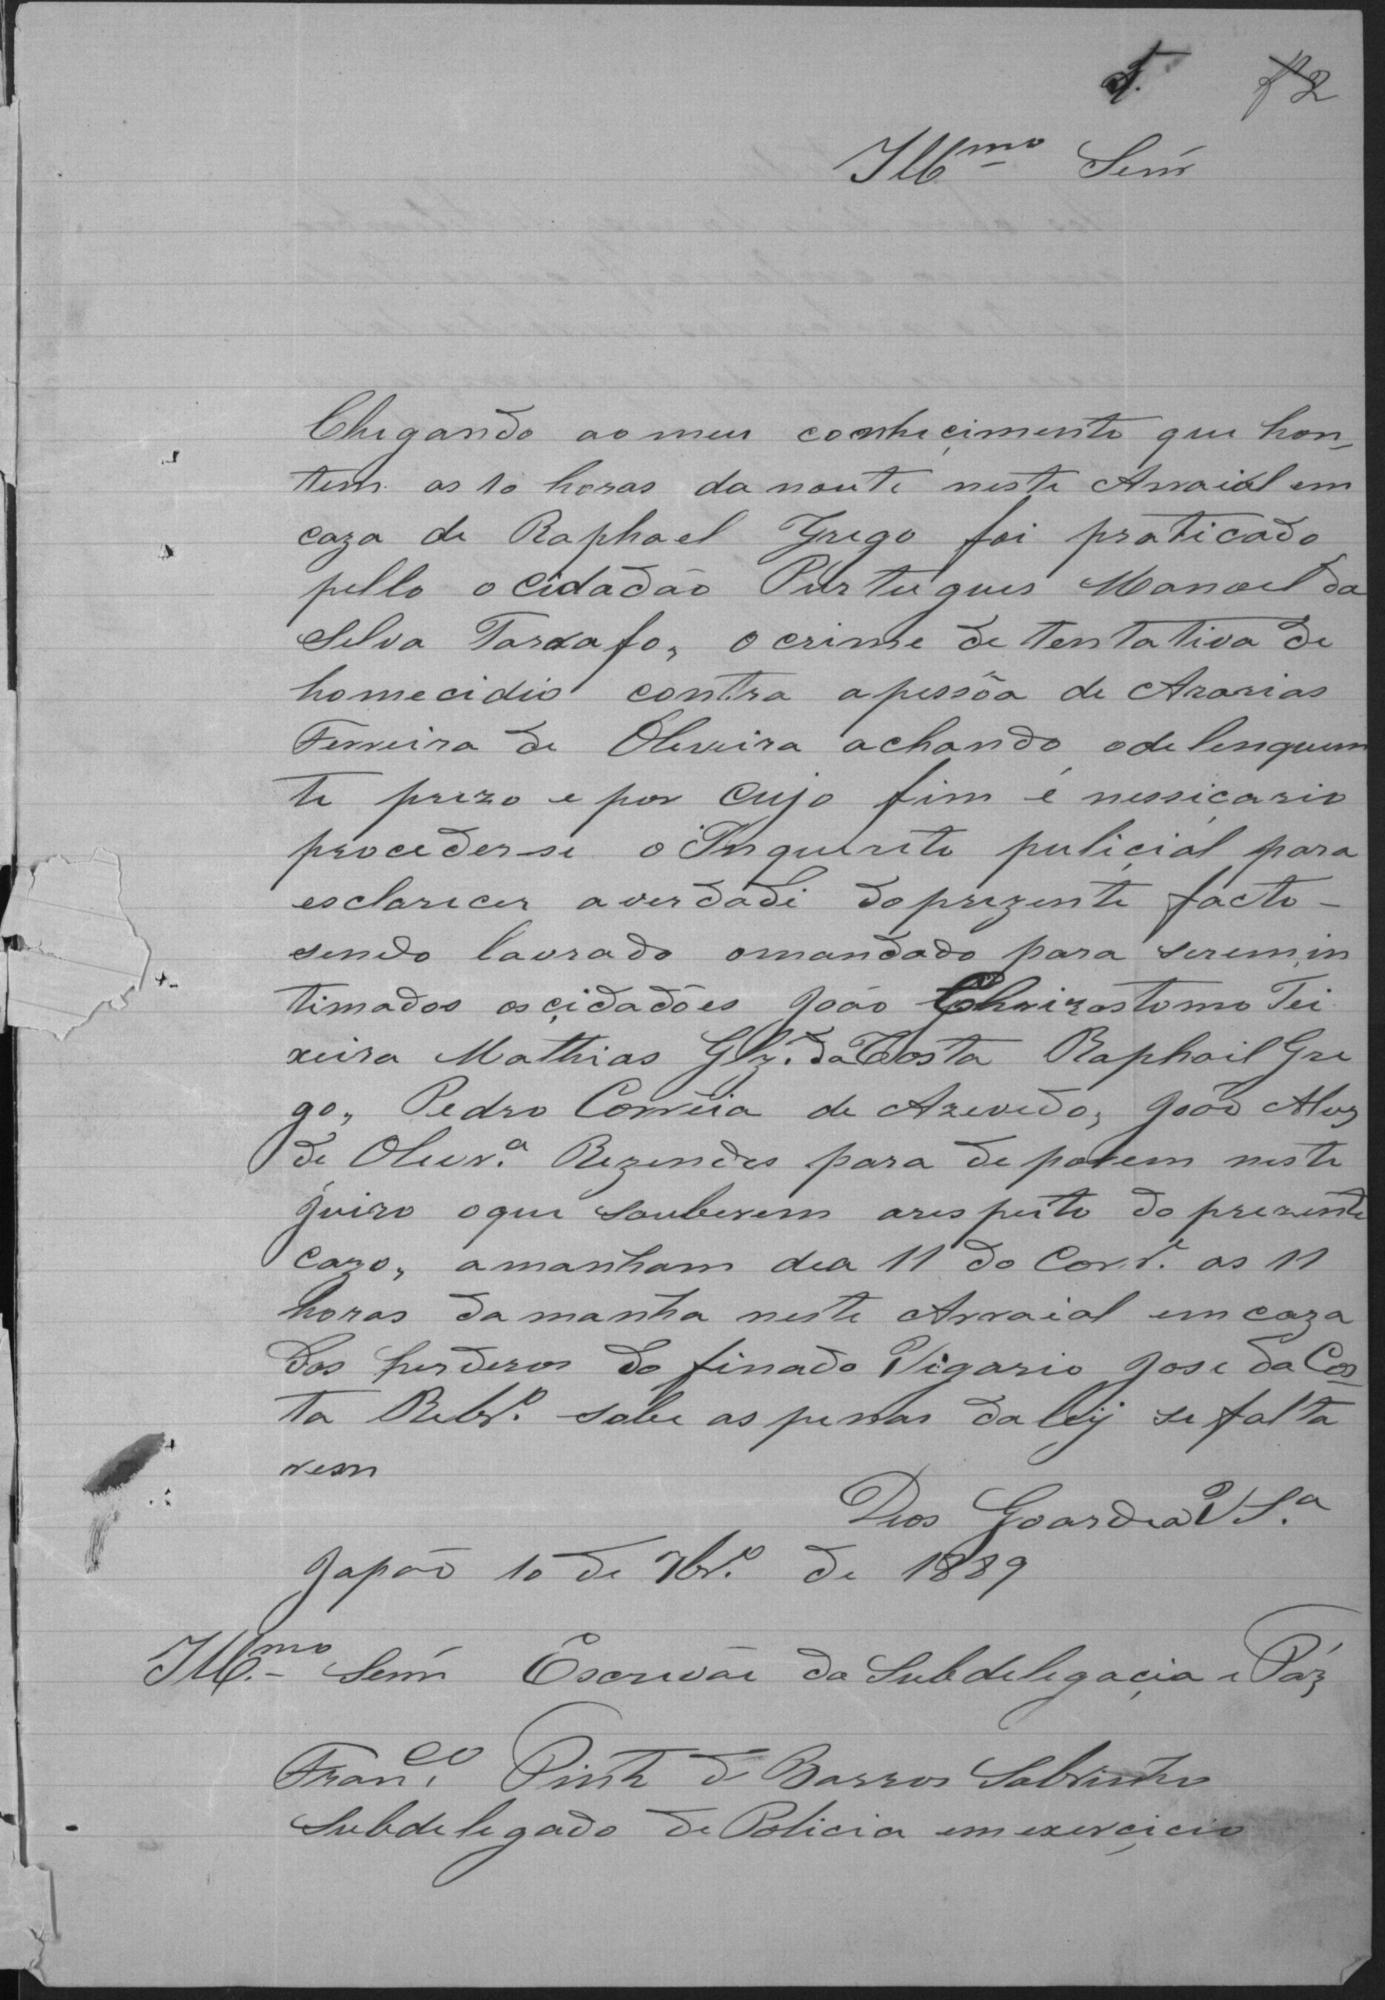 f 2
Illmo Senr
Chegando ao meu conhecimento que hon-
tem as 10 horas da noute neste Arraial em
caza de Raphael Grego foi praticado
pello o cidadão Purtugues Manoel da
Selva Tarrafo, o crime de tentativa de
homecidio contra apessôa de Ananias
Ferreira de Oliveira achando odelenquen
te prezo e por cujo fim é nessiçario
proceder-se o Inquerito puliçial para
esclarecer averdade doprezente facto -
sendo lavrado omandado para seremin
timados osçidadões João Chrizostomo Tei
xeira Mathias Glz. da Costa Raphail Gre
go, Pedro Corrêia de Azevedo, João Alvz
de Olivr.a Rezendes para deporem neste
juizo oque souberem arespeito do prezente
cazo, amanham dia 11 do Corr.e as 11
horas damanha neste Arraial emcaza
dos herderos do finado Vigario Jose da Cos
ta Rebr.o sobe as penas daley se falta
rem
Deos Goarde a V S.a
Japão 10 de 7br.o de 1889
Illmo Senr Escrivão da Subdelegaçia e Páz
Fran.co Pinto de Barros Sobrinho
Subdelegado de Policia emexerçicio